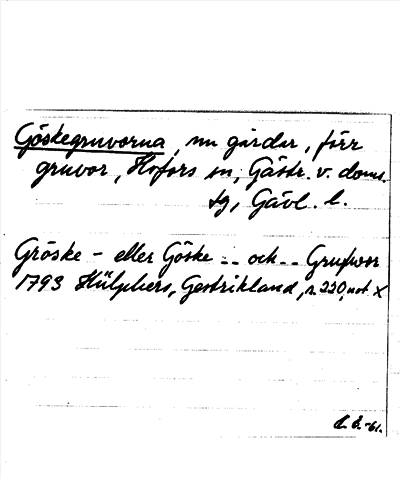 Göskegruvorna, nu gårdar, förr
gruvor, Hofors sn, Gästr. v. doms.
tg, Gävl. l.
Gröske- eller Göske -- och -- Grufwor
1793 Hülphers, Gestrikland, s. 220, not x
-61.